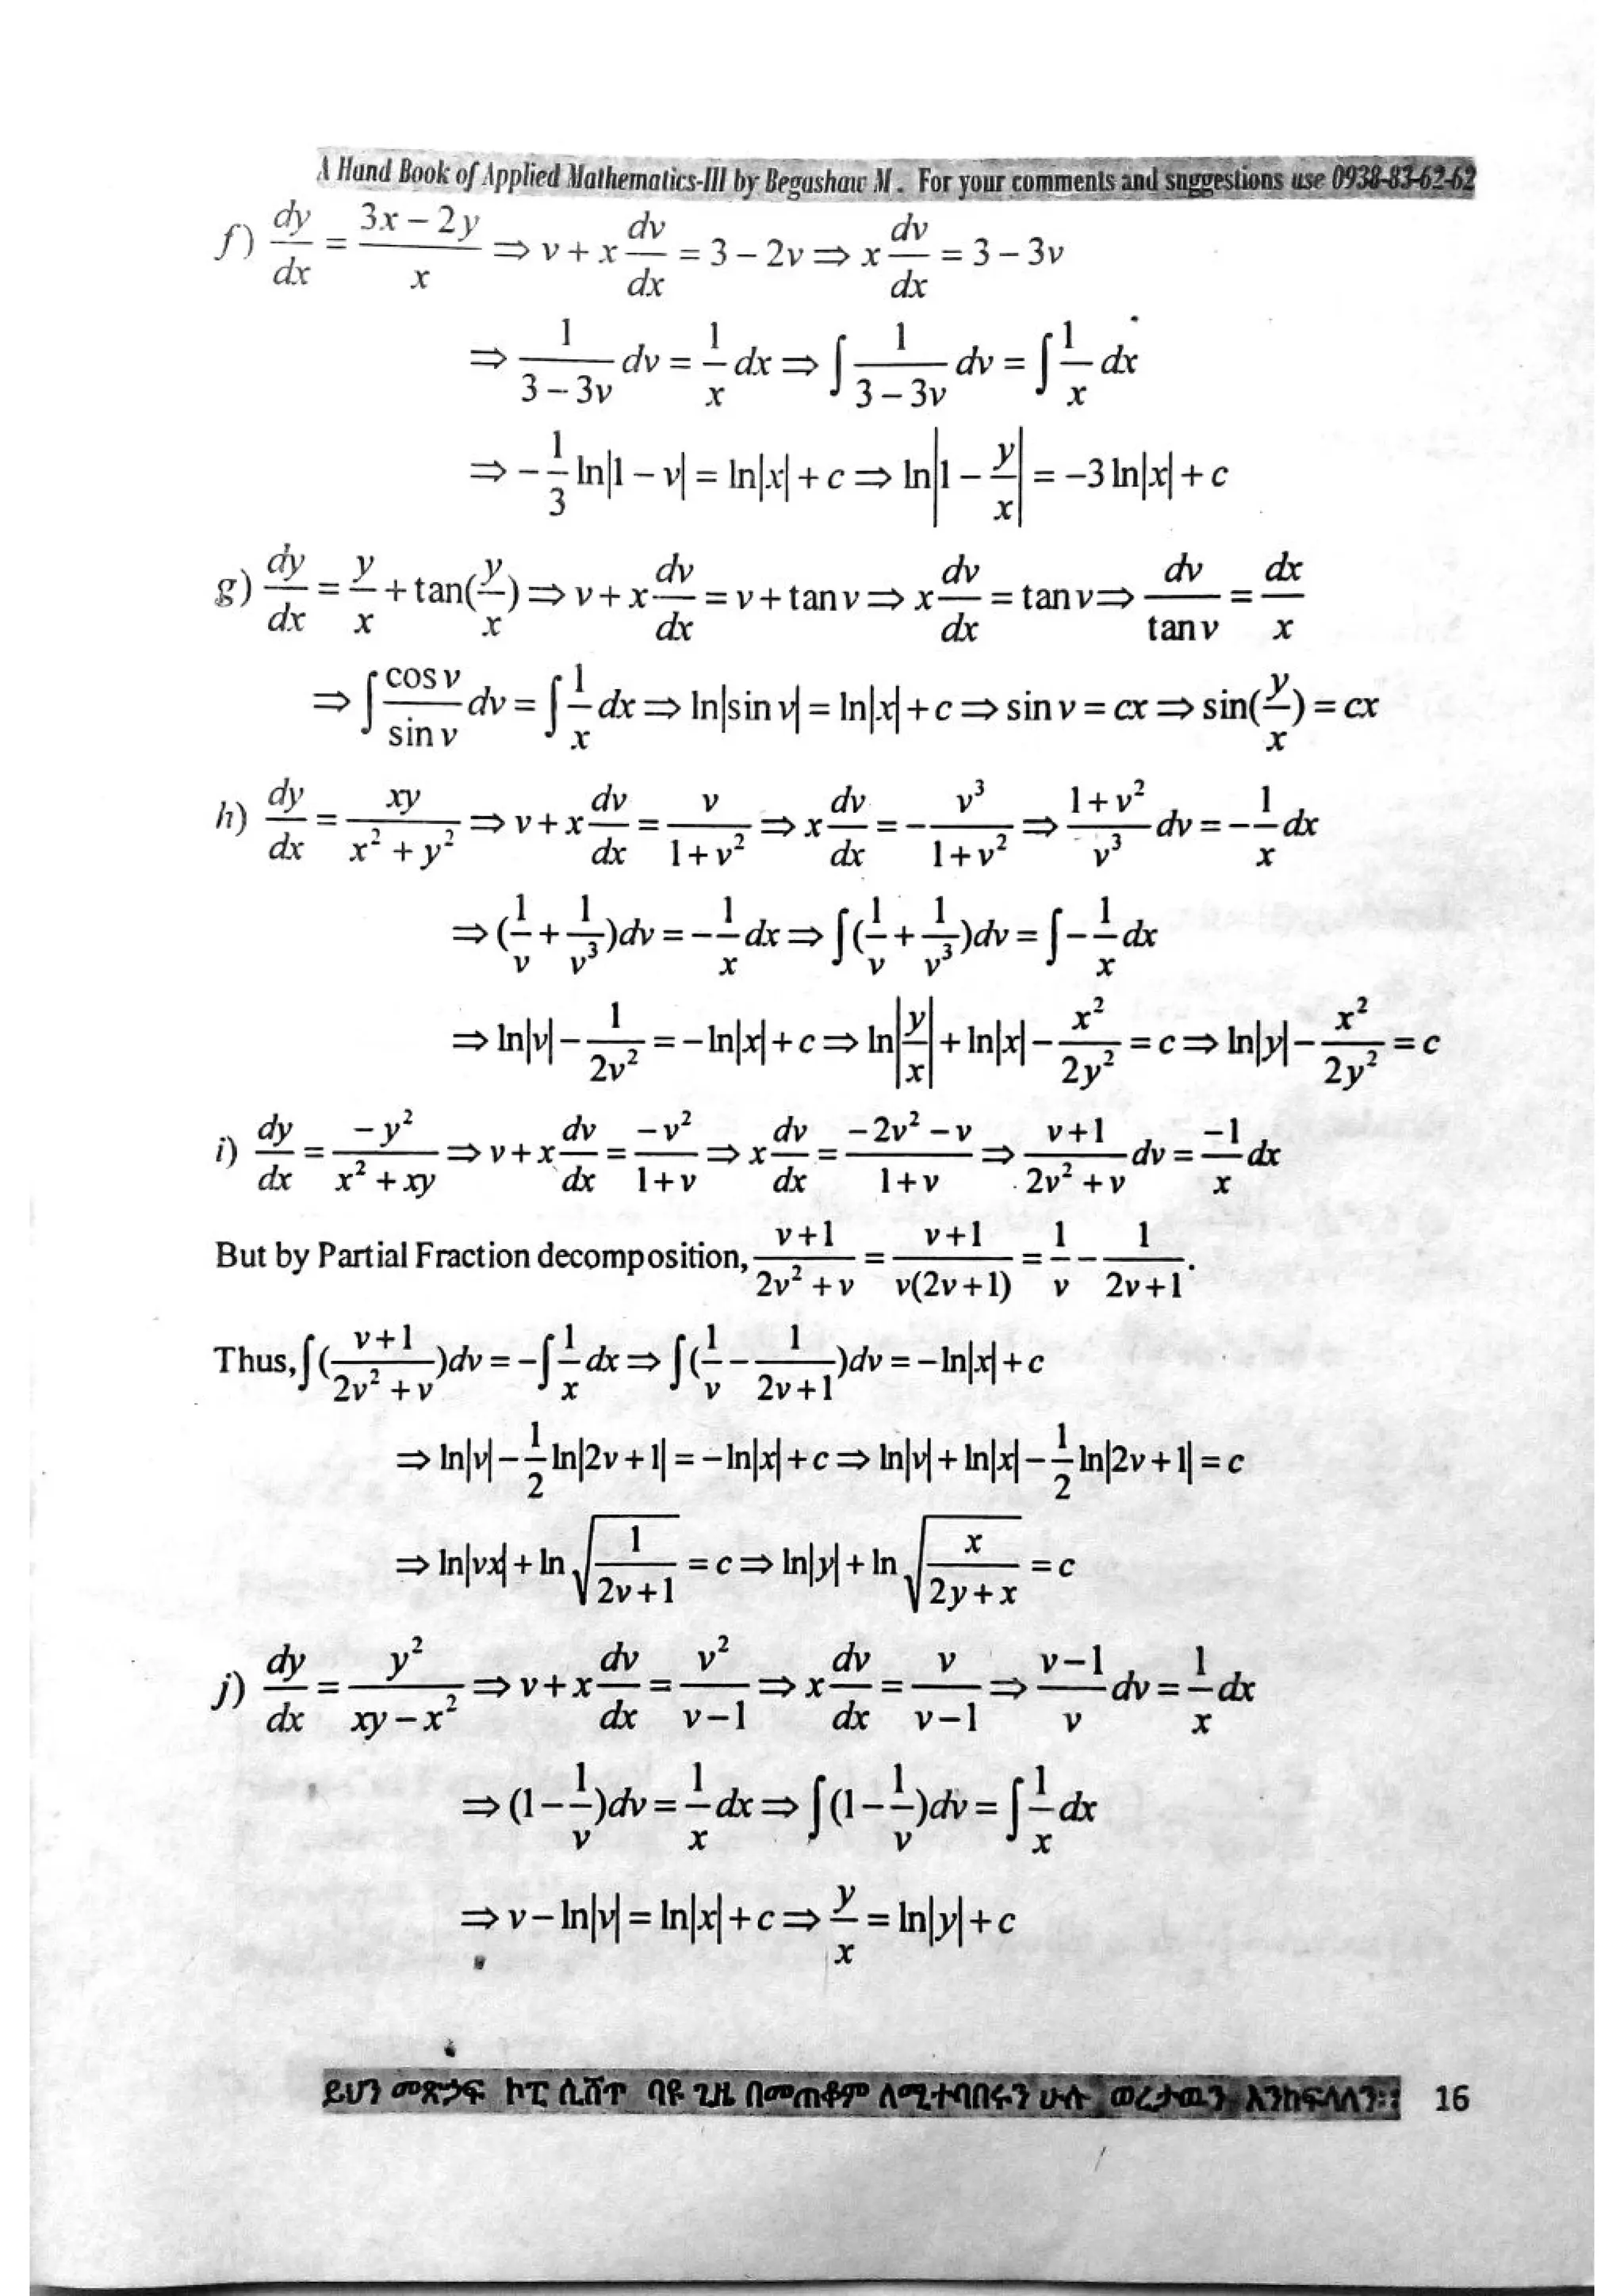 A Hand Book of Applied Mathematics-III by Begashaw M. For your comments and suggestions use 0938-83-62-62
f) dy/dx = (3x − 2y)/x ⇒ v + x dv/dx = 3 − 2v ⇒ x dv/dx = 3 − 3v
⇒ 1/(3 − 3v) dv = 1/x dx ⇒ ∫ 1/(3 − 3v) dv = ∫ 1/x dx
⇒ −1/3 ln|1 − v| = ln|x| + c ⇒ ln|1 − y/x| = −3 ln|x| + c
g) dy/dx = y/x + tan(y/x) ⇒ v + x dv/dx = v + tan v ⇒ x dv/dx = tan v ⇒ dv/tan v = dx/x
⇒ ∫ cos v/sin v dv = ∫ 1/x dx ⇒ ln|sin v| = ln|x| + c ⇒ sin v = cx ⇒ sin(y/x) = cx
h) dy/dx = xy/(x² + y²) ⇒ v + x dv/dx = v/(1 + v²) ⇒ x dv/dx = −v³/(1 + v²) ⇒ (1 + v²)/v³ dv = −1/x dx
⇒ (1/v + 1/v³)dv = −1/x dx ⇒ ∫(1/v + 1/v³)dv = ∫ −1/x dx
⇒ ln|v| − 1/(2v²) = −ln|x| + c ⇒ ln|y/x| + ln|x| − x²/(2y²) = c ⇒ ln|y| − x²/(2y²) = c
i) dy/dx = −y²/(x² + xy) ⇒ v + x dv/dx = −v²/(1 + v) ⇒ x dv/dx = (−2v² − v)/(1 + v) ⇒ (v + 1)/(2v² + v) dv = −1/x dx
But by Partial Fraction decomposition, (v + 1)/(2v² + v) = (v + 1)/(v(2v + 1)) = 1/v − 1/(2v + 1).
Thus, ∫((v + 1)/(2v² + v))dv = −∫ 1/x dx ⇒ ∫(1/v − 1/(2v + 1))dv = −ln|x| + c
⇒ ln|v| − 1/2 ln|2v + 1| = −ln|x| + c ⇒ ln|v| + ln|x| − 1/2 ln|2v + 1| = c
⇒ ln|vx| + ln √(1/(2v + 1)) = c ⇒ ln|y| + ln √(x/(2y + x)) = c
j) dy/dx = y²/(xy − x²) ⇒ v + x dv/dx = v²/(v − 1) ⇒ x dv/dx = v/(v − 1) ⇒ (v − 1)/v dv = 1/x dx
⇒ (1 − 1/v)dv = 1/x dx ⇒ ∫(1 − 1/v)dv = ∫ 1/x dx
⇒ v − ln|v| = ln|x| + c ⇒ y/x = ln|y| + c
ይህን መጽኃፍ ኮፒ ሲሸጥ ባዩ ጊዜ በመጠቆም ለሚተባበሩን ሁሉ ወረታዉን እንከፍላለን፡፡ 16